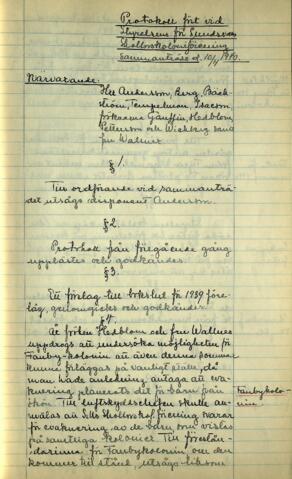 Protokoll fört vid
Styrelsens för Sundsvalls
Skollovskoloniförening
sammanträde d. 10/4 1940.
Närvarande:
Hrr Andersson, Berg, Bäck-
ström, Tempelman, Isacson,
fröknarna Hedblom,
Pettersson och Wickberg samt
fru Wallner
§ 1.
Till ordförande vid sammanträ-
det utsågs disponent Andersson.
§ 2.
Protokoll från föregående gång
upplästes och godkändes.
§ 3.
Ett förslag till bokslut för 1939 före-
låg, genomgicks och godkändes.
§ 4.
At fröken Hedblom och fru Wallner
uppdrogs att undersöka möjligheten för
Fanbykolonin att även denna sommar
kunna förläggas på vanlig plats, då
man hade anledning antaga att eva-
kuering planerats dit för barn från
Till luftskyddschefen skulle an-
mälas att S-valls Skollovskol. förening svarar
för evakuering av de barn som vistas
på samtliga kolonier. Till förestån-
darinna för Fanbykolonin, om den
kommer till stånd, utsågs liksom
Fanbykolo-
nin